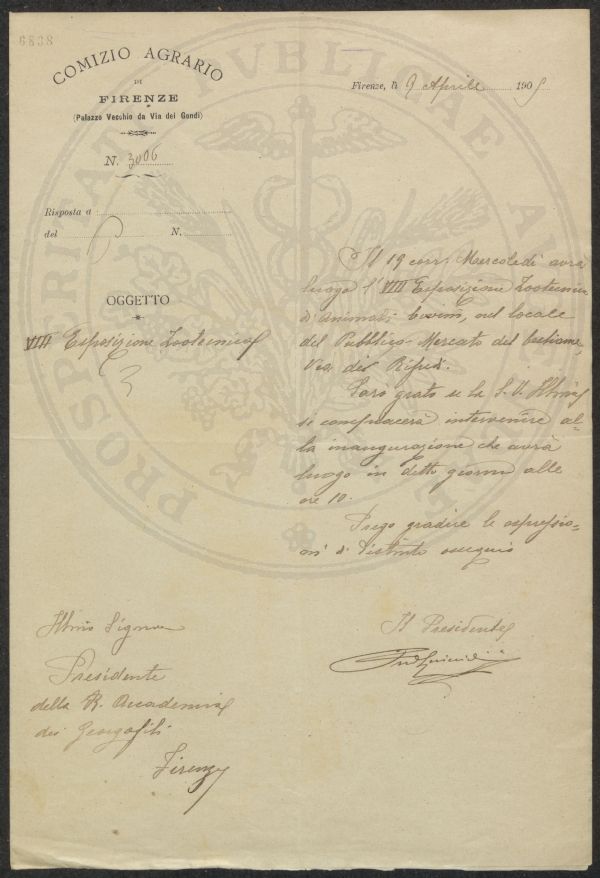 6838
COMIZIO AGRARIO
DI
FIRENZE
(Palazzo Vecchio da Via dei Gondi)
N. 3006
Risposta a
del N.
OGGETTO
VIII Esposizione Zootecnica
Firenze, li 9 Aprile 1905
Il 19 corr. Mercoledì avrà
luogo l'VIII Esposizione Zootecnica
d'Animali bovini, nel locale
del Pubblico Mercato del bestiame,
Via dei Rifredi.
Sarò grato se la S. V. Illma
si compiacerà intervenire al-
la inaugurazione che avrà
luogo in detto giorno alle
ore 10.
Prego gradire le espressio-
ni di distinto ossequio
Il Presidente
Illmo Signor
Presidente
della R. Accademia
dei Georgofili
Firenze
PROSPERITATI PVBLICAE